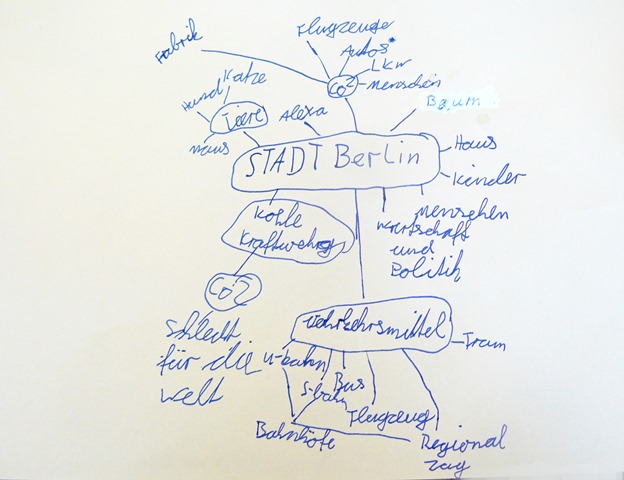 Flugzeuge
Fabrik
Autos
LKW
CO2
Menschen
Katze
Hund
Tiere
Alexa
Baum
Maus
STADT Berlin
Haus
Kinder
Kohle
Kraftwehrg
Menschen
Wirtschaft
und
Politik
CO2
Schlecht
für die
Welt
Verkehrsmittel
Tram
U-bahn
S-bahn
Bus
Flugzeug
Bahnhöfe
Regional
zug